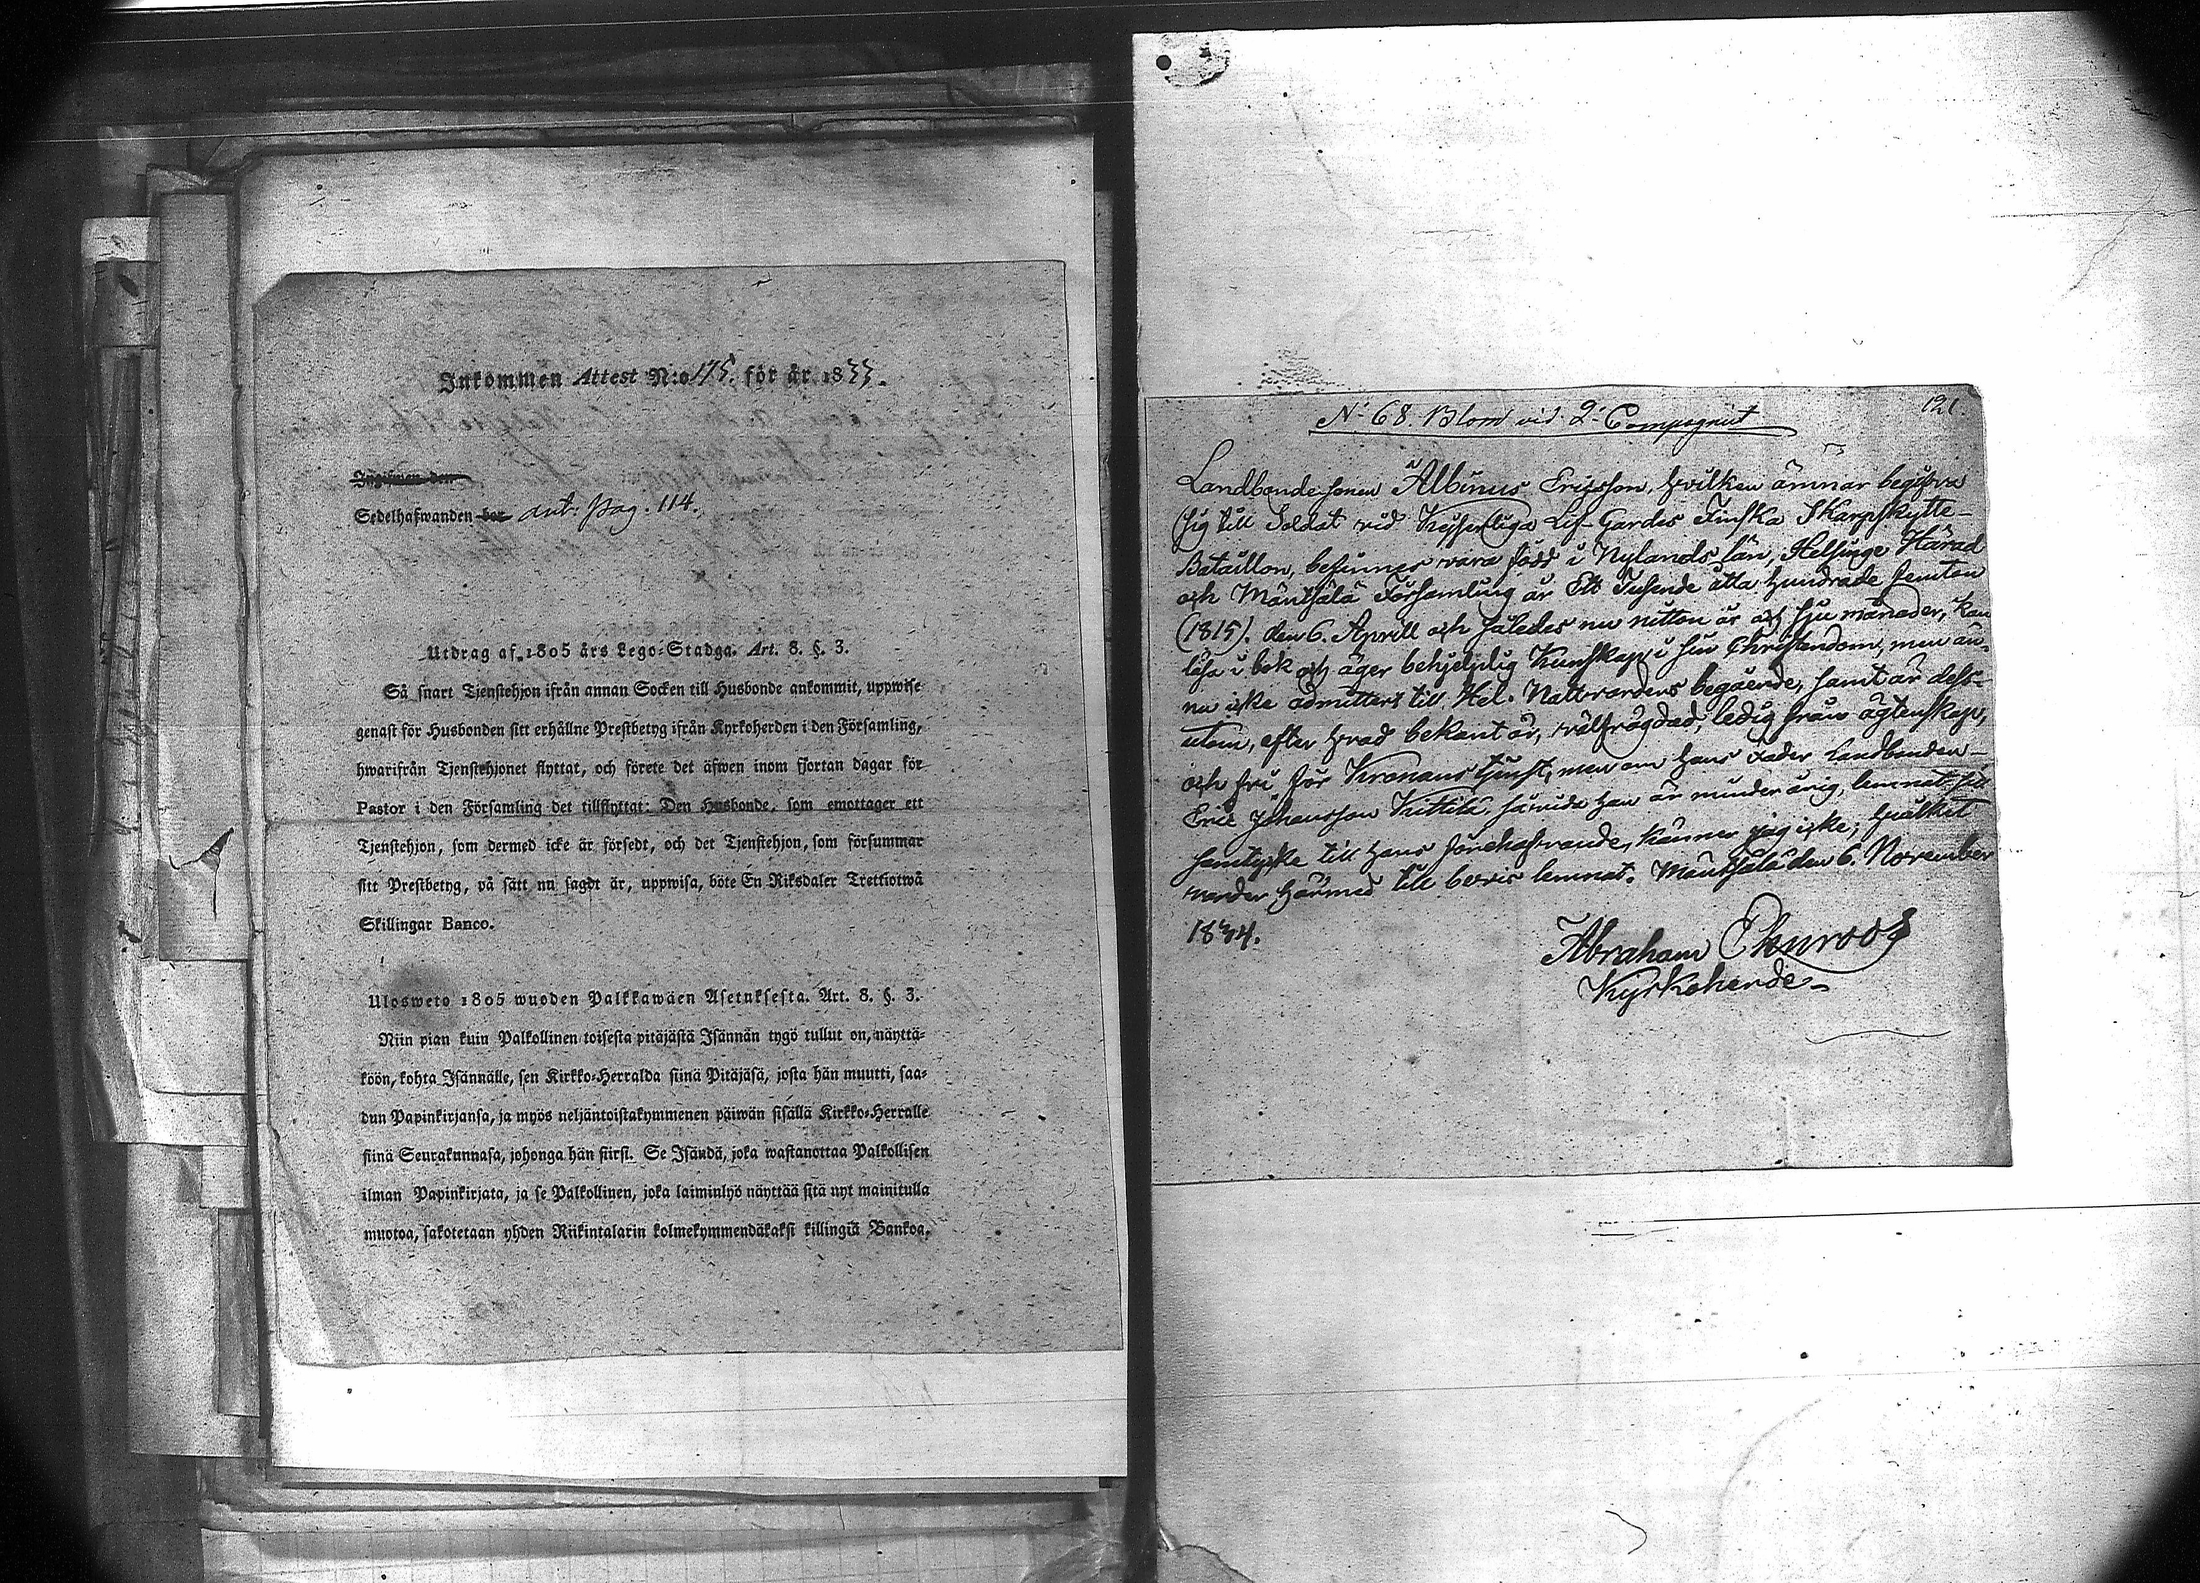 Inkommen Attest N:o 175. för år 1833.
Ingifwen den
Sedelhafwanden bor ant: pag. 114.
Utdrag af 1805 års Lego-Stadga. Art. 8. §. 3.
Så snart Tjenstehjon ifrån annan Socken till Husbonde ankommit, uppwise
genast för Husbonden sitt erhållne Prestbetyg ifrån Kyrkoherden i den Församling,
hwarifrån Tjenstehjonet flyttat, och förete det äfwen inom fjortan dagar för
Pastor i den Församling det tillflyttat: Den Husbonde, som emottager ett
Tjenstehjon, som dermed icke är försedt, och det Tjenstehjon, som försummar
sitt Prestbetyg, på sätt nu sagdt är, uppwisa, böte En Riksdaler Trettiotwå
Skillingar Banco.
Ulosweto 1805 wuoden Palkkawäen Asetuksesta. Art. 8. §. 3.
Niin pian kuin Palkollinen toisesta pitäjästä Isännän tygö tullut on, näyttä-
köön, kohta Isännälle, sen Kirkko-Herralda siinä Pitäjäsä, josta hän muutti, saa-
dun Papinkirjansa, ja myös neljäntoistakymmenen päiwän sisällä Kirkko-Herralle
siinä Seurakunnasa, johonga hän siirsi. Se Isändä, joka wastanottaa Palkollisen
ilman Papinkirjata, ja se Palkollinen, joka laiminlyö näyttää sitä nyt mainitulla
muotoa, sakotetaan yhden Riikintalarin kolmekymmendäkaksi killingiä Bankoa.
121.
N:o 68. Blom vid 2:a Compagniet
Landbondesonen Albinus Ericsson, hvilken ämnar begifva
sig till Soldat vid Kejserliga Lif-Gardes Finska Skarpskytte-
Bataillon, befinnes vara född i Nylands län, Helsinge Härad
och Mäntsälä Församling år Ett Tusende åtta hundrade femton
(1815). den 6. Aprill och således nu nitton år och sju månader, kan
läsa i bok och äger behjelplig Kunskap i sin Christendom, men än-
nu icke admitterd till Hel. Nattvardens begående, samt är dess-
utom, efter hvad bekant är, välfrägdad, ledig från ägtenskap,
och fri för Kronans tjenst, men om hans Fader Landbonden
Eric Johansson Kittilä, såvida han är minderårig, lemnat sitt
samtycke till hans förehafvande, känner jag icke; hvilket
varder härmed till bevis lemnat. Mäntsälä den 6. November
1834.
Abraham Ekuroos
Kyrkoherde